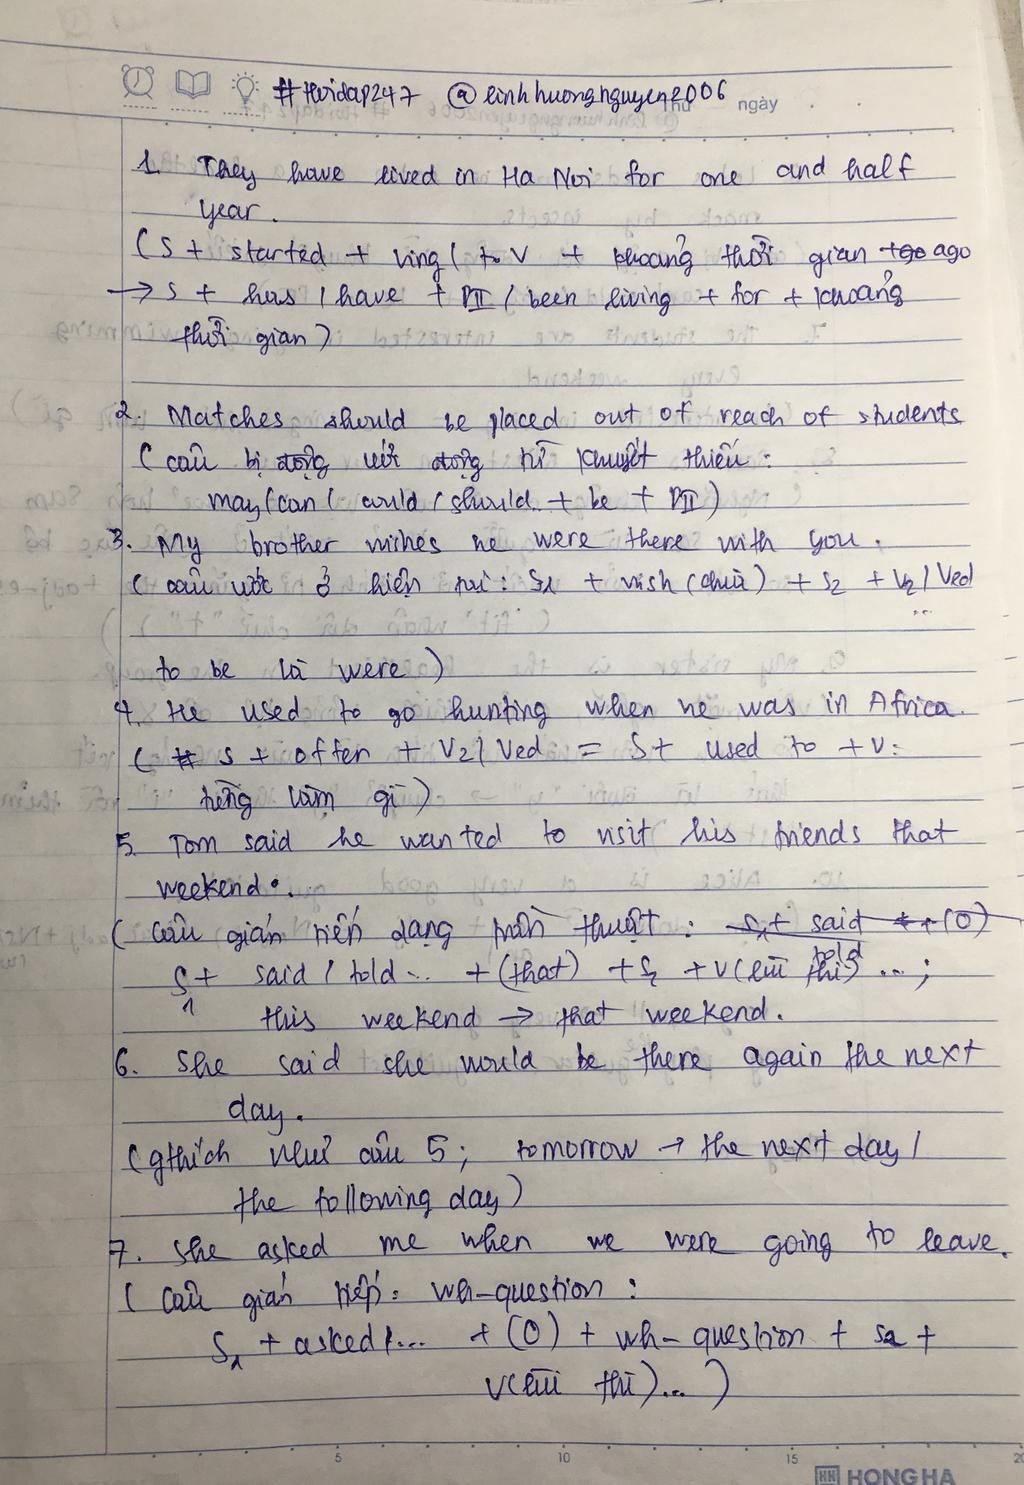 #Hoidap247 @linhhuongnguyen2006
Thứ ngày
1. They have lived in Ha Noi for one and half
year.
(S + started + Ving / to V + khoảng thời gian ago
→ S + has / have + PII / been living + for + khoảng
thời gian)
2. Matches should be placed out of reach of students
(câu bị động với động từ khuyết thiếu:
may / can / could / should + be + PII)
3. My brother wishes he were there with you.
(câu ước ở hiện tại: S1 + wish (chia) + S2 + V2 / Ved
...
to be là were)
4. He used to go hunting when he was in Africa.
(S + offen + V2 / Ved = S + used to + V:
từng làm gì)
5. Tom said he wanted to visit his friends that
weekend.
(Câu gián tiếp dạng trần thuật: S1 + said (O)
told
S1 + said / told... + (that) + S2 + V(lùi thì)...;
this weekend → that weekend.
6. She said she would be there again the next
day.
(gthích như câu 5; tomorrow → the next day /
the following day)
7. She asked me when we were going to leave.
(Câu gián tiếp: wh-question:
S1 + asked /... + (O) + wh-question + S2 +
V(lùi thì)...)
5 10 15 20
HH HONG HA